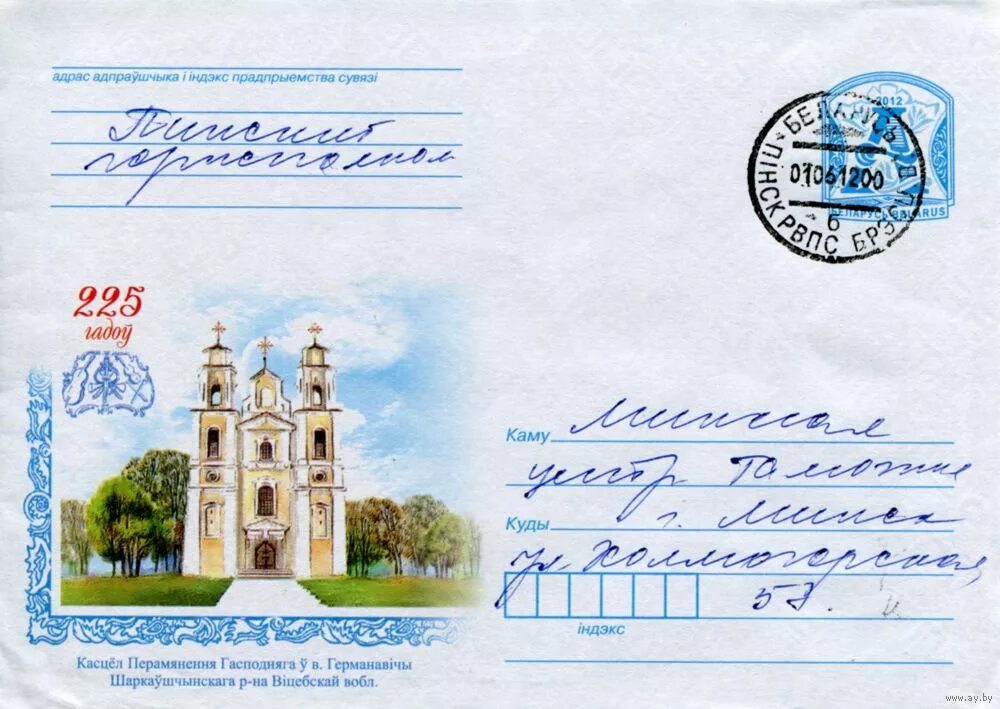 адрас адпраўшчыка і індэкс прадпрыемства сувязі
Пинский
горисполком
2012
БЕЛАРУСЬ BELARUS
БЕЛАРУСЬ
ПІНСК РВПС БРЭС
01061200
6
225
гадоў
Каму Минская
центр. Таможня
Куды г. Минск
ул. Холмогорская,
57.
індэкс
Касцёл Перамянення Гасподняга ў в. Германавічы
Шаркаўшчынскага р-на Віцебскай вобл.
www.ay.by